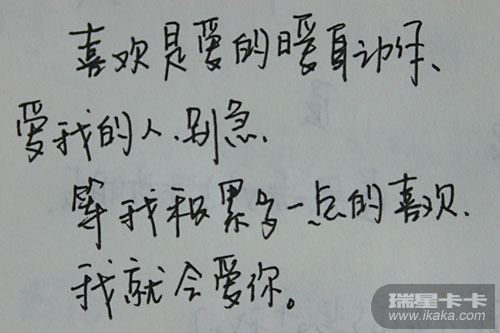 喜欢是爱的暖身动作、
爱我的人.别急.
等我积累多一点的喜欢.
我就会爱你。
瑞星卡卡
www.ikaka.com